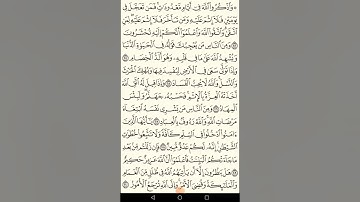 ۞ وَٱذْكُرُوا۟ ٱللَّهَ فِىٓ أَيَّامٍ مَّعْدُودَٰتٍ فَمَن تَعَجَّلَ فِى
يَوْمَيْنِ فَلَآ إِثْمَ عَلَيْهِ وَمَن تَأَخَّرَ فَلَآ إِثْمَ عَلَيْهِ لِمَنِ
ٱتَّقَىٰ وَٱتَّقُوا۟ ٱللَّهَ وَٱعْلَمُوٓا۟ أَنَّكُمْ إِلَيْهِ تُحْشَرُونَ
۝ وَمِنَ ٱلنَّاسِ مَن يُعْجِبُكَ قَوْلُهُۥ فِى ٱلْحَيَوٰةِ ٱلدُّنْيَا
وَيُشْهِدُ ٱللَّهَ عَلَىٰ مَا فِى قَلْبِهِۦ وَهُوَ أَلَدُّ ٱلْخِصَامِ ۝
وَإِذَا تَوَلَّىٰ سَعَىٰ فِى ٱلْأَرْضِ لِيُفْسِدَ فِيهَا وَيُهْلِكَ ٱلْحَرْثَ
وَٱلنَّسْلَ وَٱللَّهُ لَا يُحِبُّ ٱلْفَسَادَ ۝ وَإِذَا قِيلَ لَهُ ٱتَّقِ ٱللَّهَ
أَخَذَتْهُ ٱلْعِزَّةُ بِٱلْإِثْمِ فَحَسْبُهُۥ جَهَنَّمُ وَلَبِئْسَ
ٱلْمِهَادُ ۝ وَمِنَ ٱلنَّاسِ مَن يَشْرِى نَفْسَهُ ٱبْتِغَآءَ
مَرْضَاتِ ٱللَّهِ وَٱللَّهُ رَءُوفٌۢ بِٱلْعِبَادِ ۝ يَٰٓأَيُّهَا ٱلَّذِينَ
ءَامَنُوا۟ ٱدْخُلُوا۟ فِى ٱلسِّلْمِ كَآفَّةً وَلَا تَتَّبِعُوا۟ خُطُوَٰتِ
ٱلشَّيْطَٰنِ إِنَّهُۥ لَكُمْ عَدُوٌّ مُّبِينٌ ۝ فَإِن زَلَلْتُم مِّنۢ بَعْدِ
مَا جَآءَتْكُمُ ٱلْبَيِّنَٰتُ فَٱعْلَمُوٓا۟ أَنَّ ٱللَّهَ عَزِيزٌ حَكِيمٌ
۝ هَلْ يَنظُرُونَ إِلَّآ أَن يَأْتِيَهُمُ ٱللَّهُ فِى ظُلَلٍ مِّنَ ٱلْغَمَامِ
وَٱلْمَلَٰٓئِكَةُ وَقُضِىَ ٱلْأَمْرُ وَإِلَى ٱللَّهِ تُرْجَعُ ٱلْأُمُورُ ۝